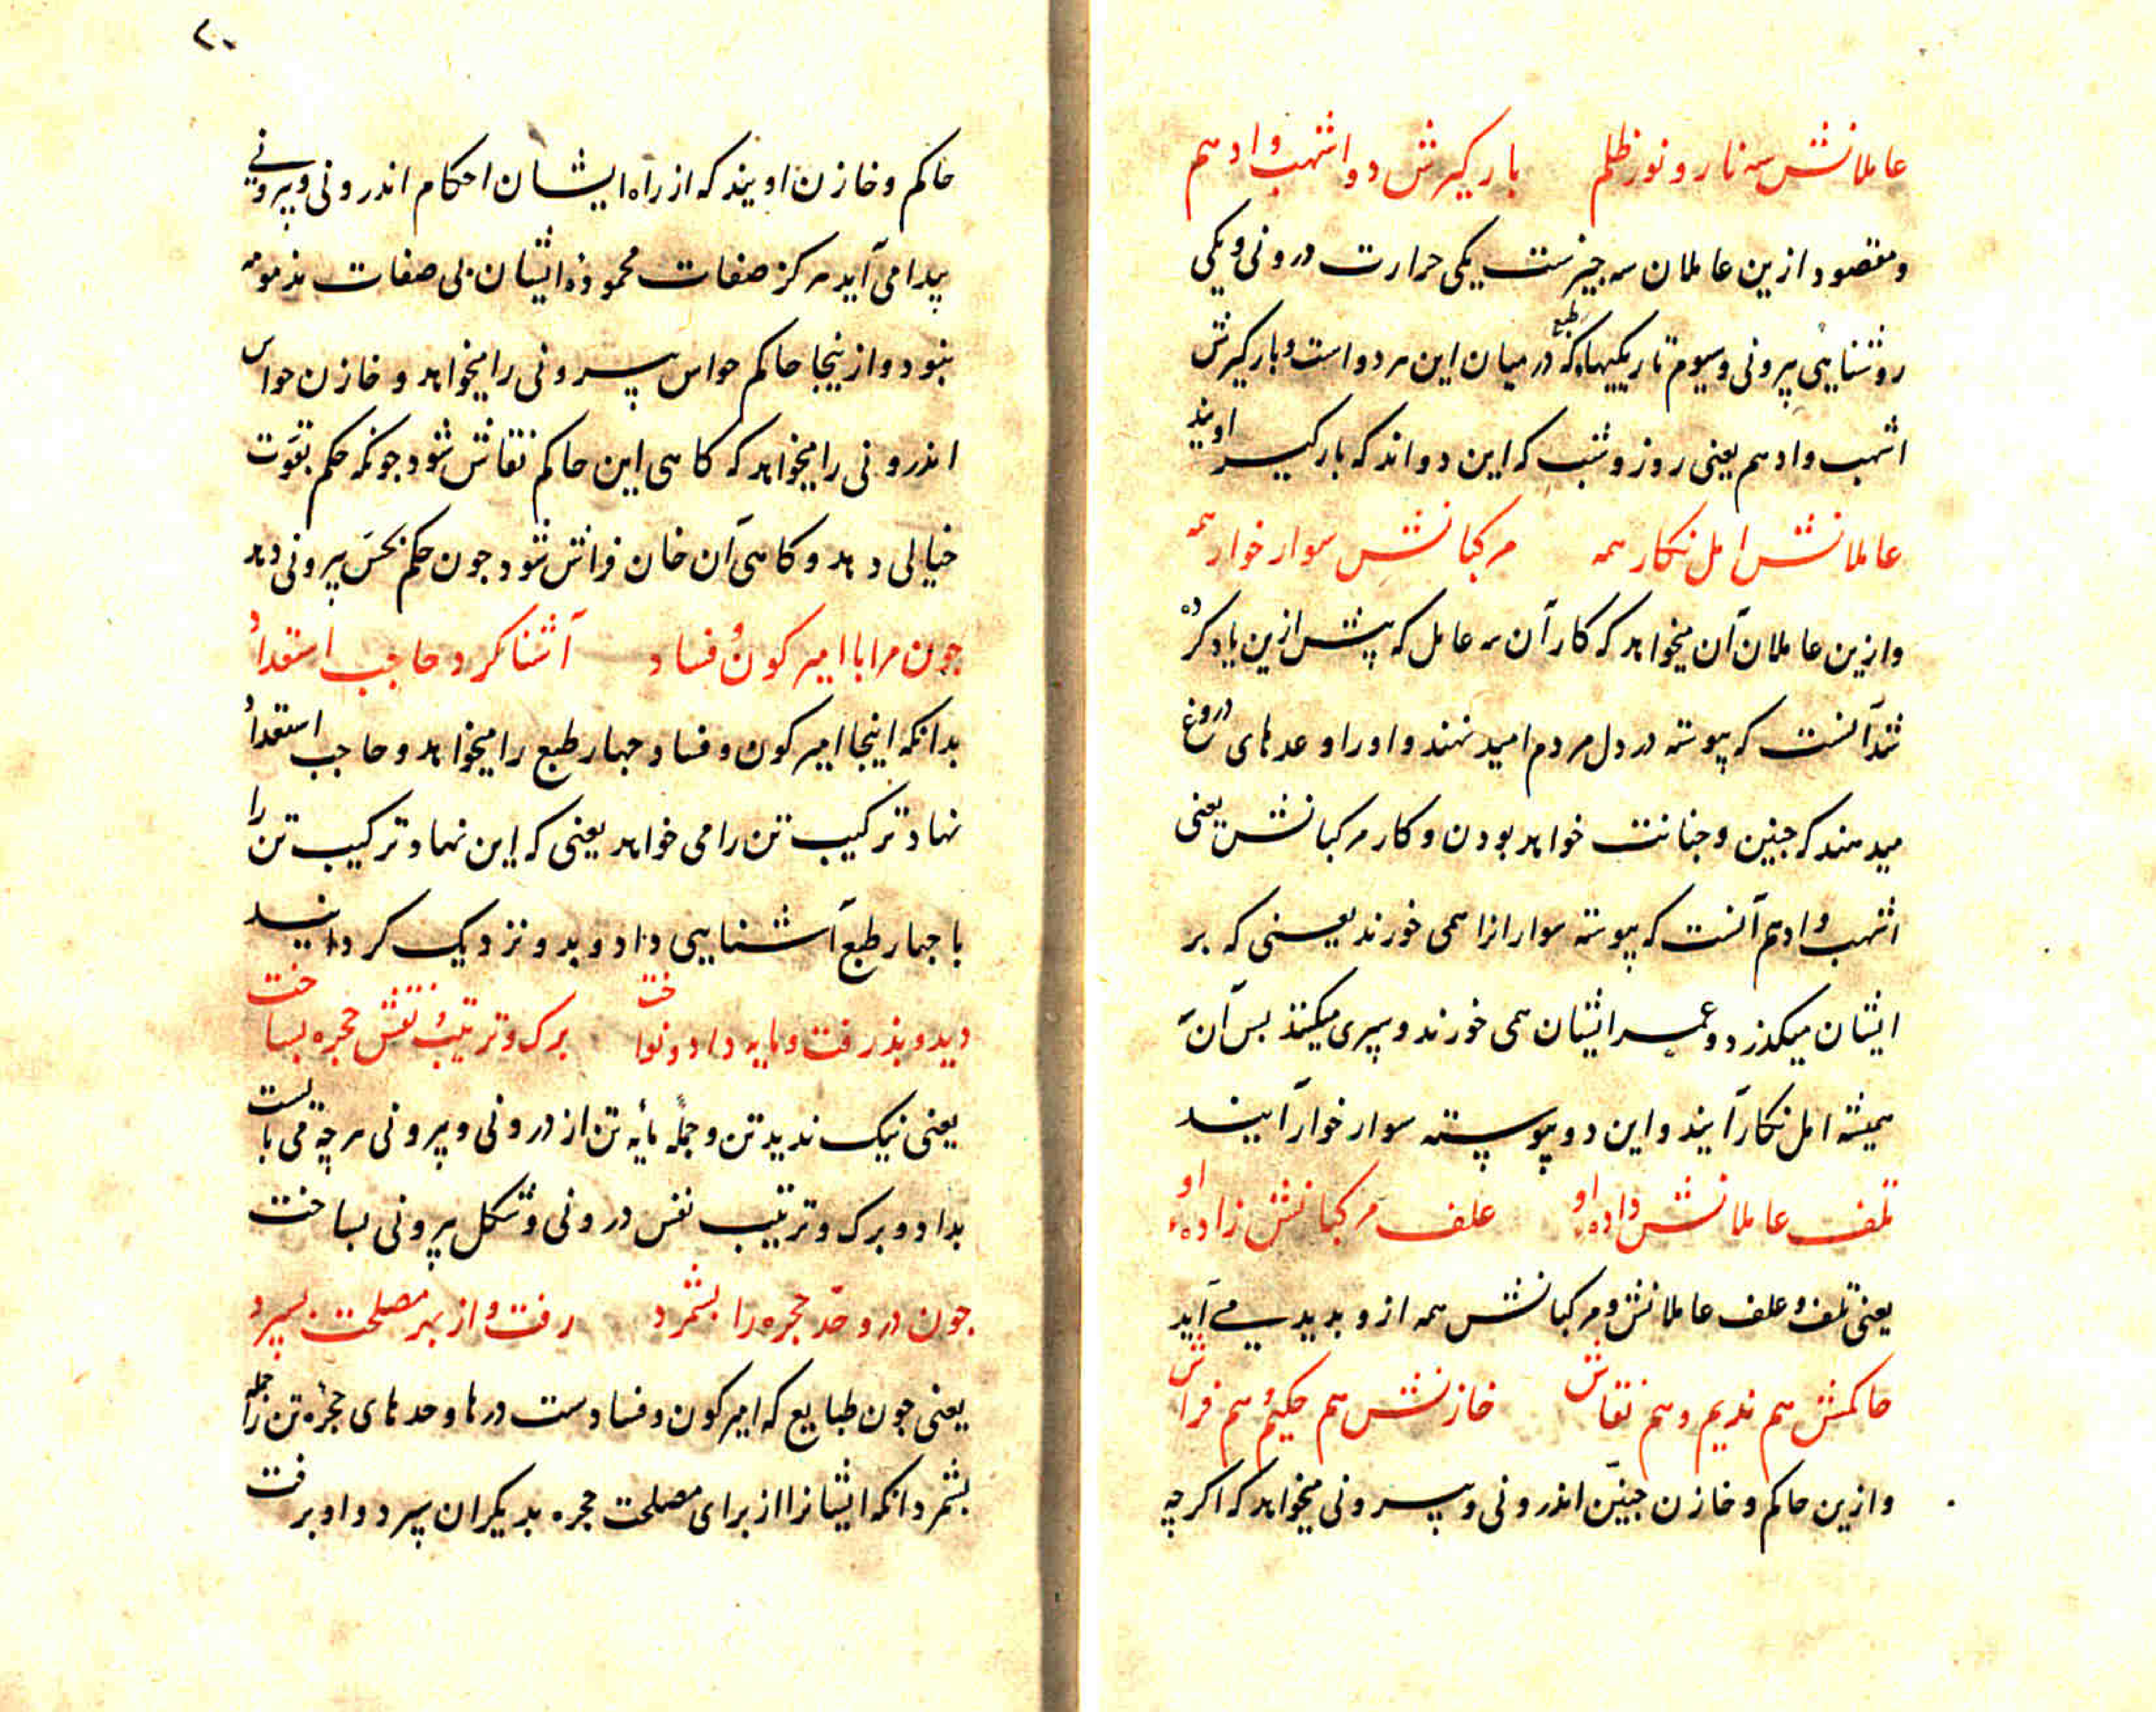 عاملانش سه نار و نور و ظلم بارگیرش دو اشهب و ادهم
و مقصود ازین عاملان سه چیزست یکی حرارت درونی و یکی
روشنایی بیرونی و سیوم تاریکیهاء طبع که در میان این هر دو است و بارگیرش
اشهب و ادهم یعنی روز و شب که این دواند که بارگیر اویند
عاملانش امل نکار همه مرکبانش سوار خوار همه
و ازین عاملان آن میخواهد که کار آن سه عامل که پیش ازین یاد کرده
شد آنست که پیوسته در دل مردم امید نهند و او را وعدهای دروغ
میدهند که چنین و چنانت خواهد بودن و کار مرکبانش یعنی
اشهب و ادهم آنست که پیوسته سوارانرا همی خورند یعنی که بر
ایشان میگذرد و عمر ایشان همی خورند و سپری میکنند بس آن سه
همیشه امل نکار آیند و این دو پیوسته سوار خوار آیند
تلف عاملانش داده او علف مرکبانش زاده او
یعنی تلف و علف عاملانش و مرکبانش همه ازو بدید می آید
حاکمش هم ندیم و هم نقاش خازنش هم حکیم و هم فراش
و ازین حاکم و خازن چنین اندرونی و بیرونی میخواهد که اگرچه
۲۰
حاکم و خازن اویند که از راه ایشان احکام اندرونی و بیرونی
پیدا می آید هرگز صفات محموده ایشان بی صفات مذمومه
نبود و ازینجا حاکم حواس بیرونی را میخواهد و خازن حواس
اندرونی را میخواهد که گاهی این حاکم نقاش شود چونکه حکم بقوت
خیالی دهد و گاهی آن خازن فراش شود چون حکم بحس بیرونی دهد
چون مرا با امیر کون و فساد آشنا کرد حاجب استعداد
بدانکه اینجا امیر کون و فساد چهار طبع را میخواهد و حاجب استعداد
نهاد ترکیب تن را می خواهد یعنی که این نهاد ترکیب تن را
با چهار طبع آشنایی داد و بدو نزدیک گردانید
دید و بذرفت و مایه داد و نواخت برگ و ترتیب و نقش حجره بساخت
یعنی نیک ندید تن و جمله مایه تن از درونی و بیرونی هرچه می بایست
بداد و برگ و ترتیب نفس درونی و شکل بیرونی بساخت
چون در و حد حجره را بشمرد رفت و از بهر مصلحت بسپرد
یعنی چون طبایع که امیر کون و فسادست درها و حدهای حجره تن را جمله
بشمرد انکه ایشانرا از برای مصلحت حجره بدیگران سپرد و او برفت